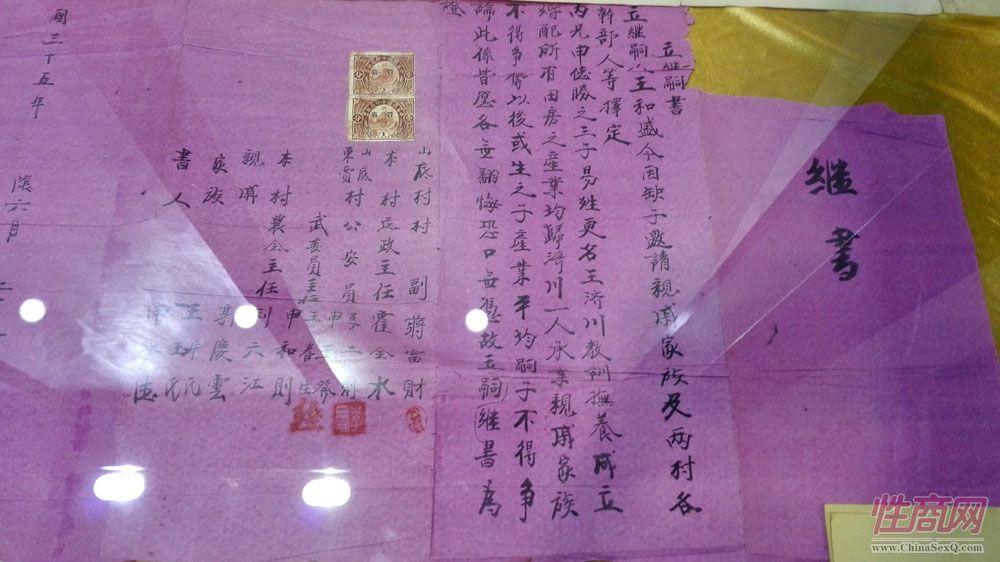 继書
立继嗣書
立继嗣人王和盛今因缺子邀請親戚家族及两村各
幹部人等擇定
内兄申德勝之三子易姓更名王济川教訓撫養成立
婚配所有田房之產業均歸濟川一人承業親戚家族
不得争奪以後或生之子產業平均嗣子不得争
論此係皆愿各無翻悔恐口無憑故立嗣继書為
證
山底村村副蒋富財
本村民政主任霍金水
山底
東賈村公安員李二則
申
武委員主任王春生
本村農会主任申和則
親戚刘六江
家族郭慶雲
王
書人申
國三十五年
陰六月二
性商网
www.ChinaSexQ.com